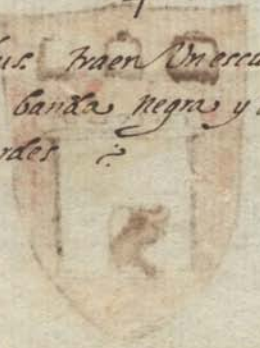 traen Un escu
banda negra y
rdes